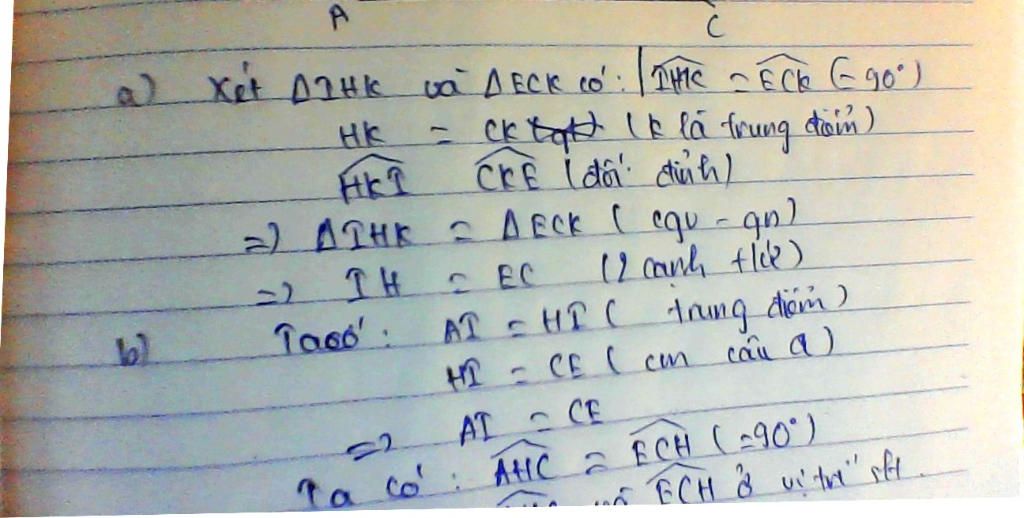 A C
a) Xét ΔIHK và ΔECK có: | IHK = ECK (= 90°)
HK = CK (K là trung điểm)
HKI CKE (đối đỉnh)
=> ΔIHK = ΔECK ( cgv - gn)
=> IH = EC (2 cạnh t/ứ)
b) Ta có: AI = HI ( trung điểm)
HI = CE ( cm câu a)
=> AI = CE
Ta có: AHC = ECH (=90°)
ECH ở vị trí slt